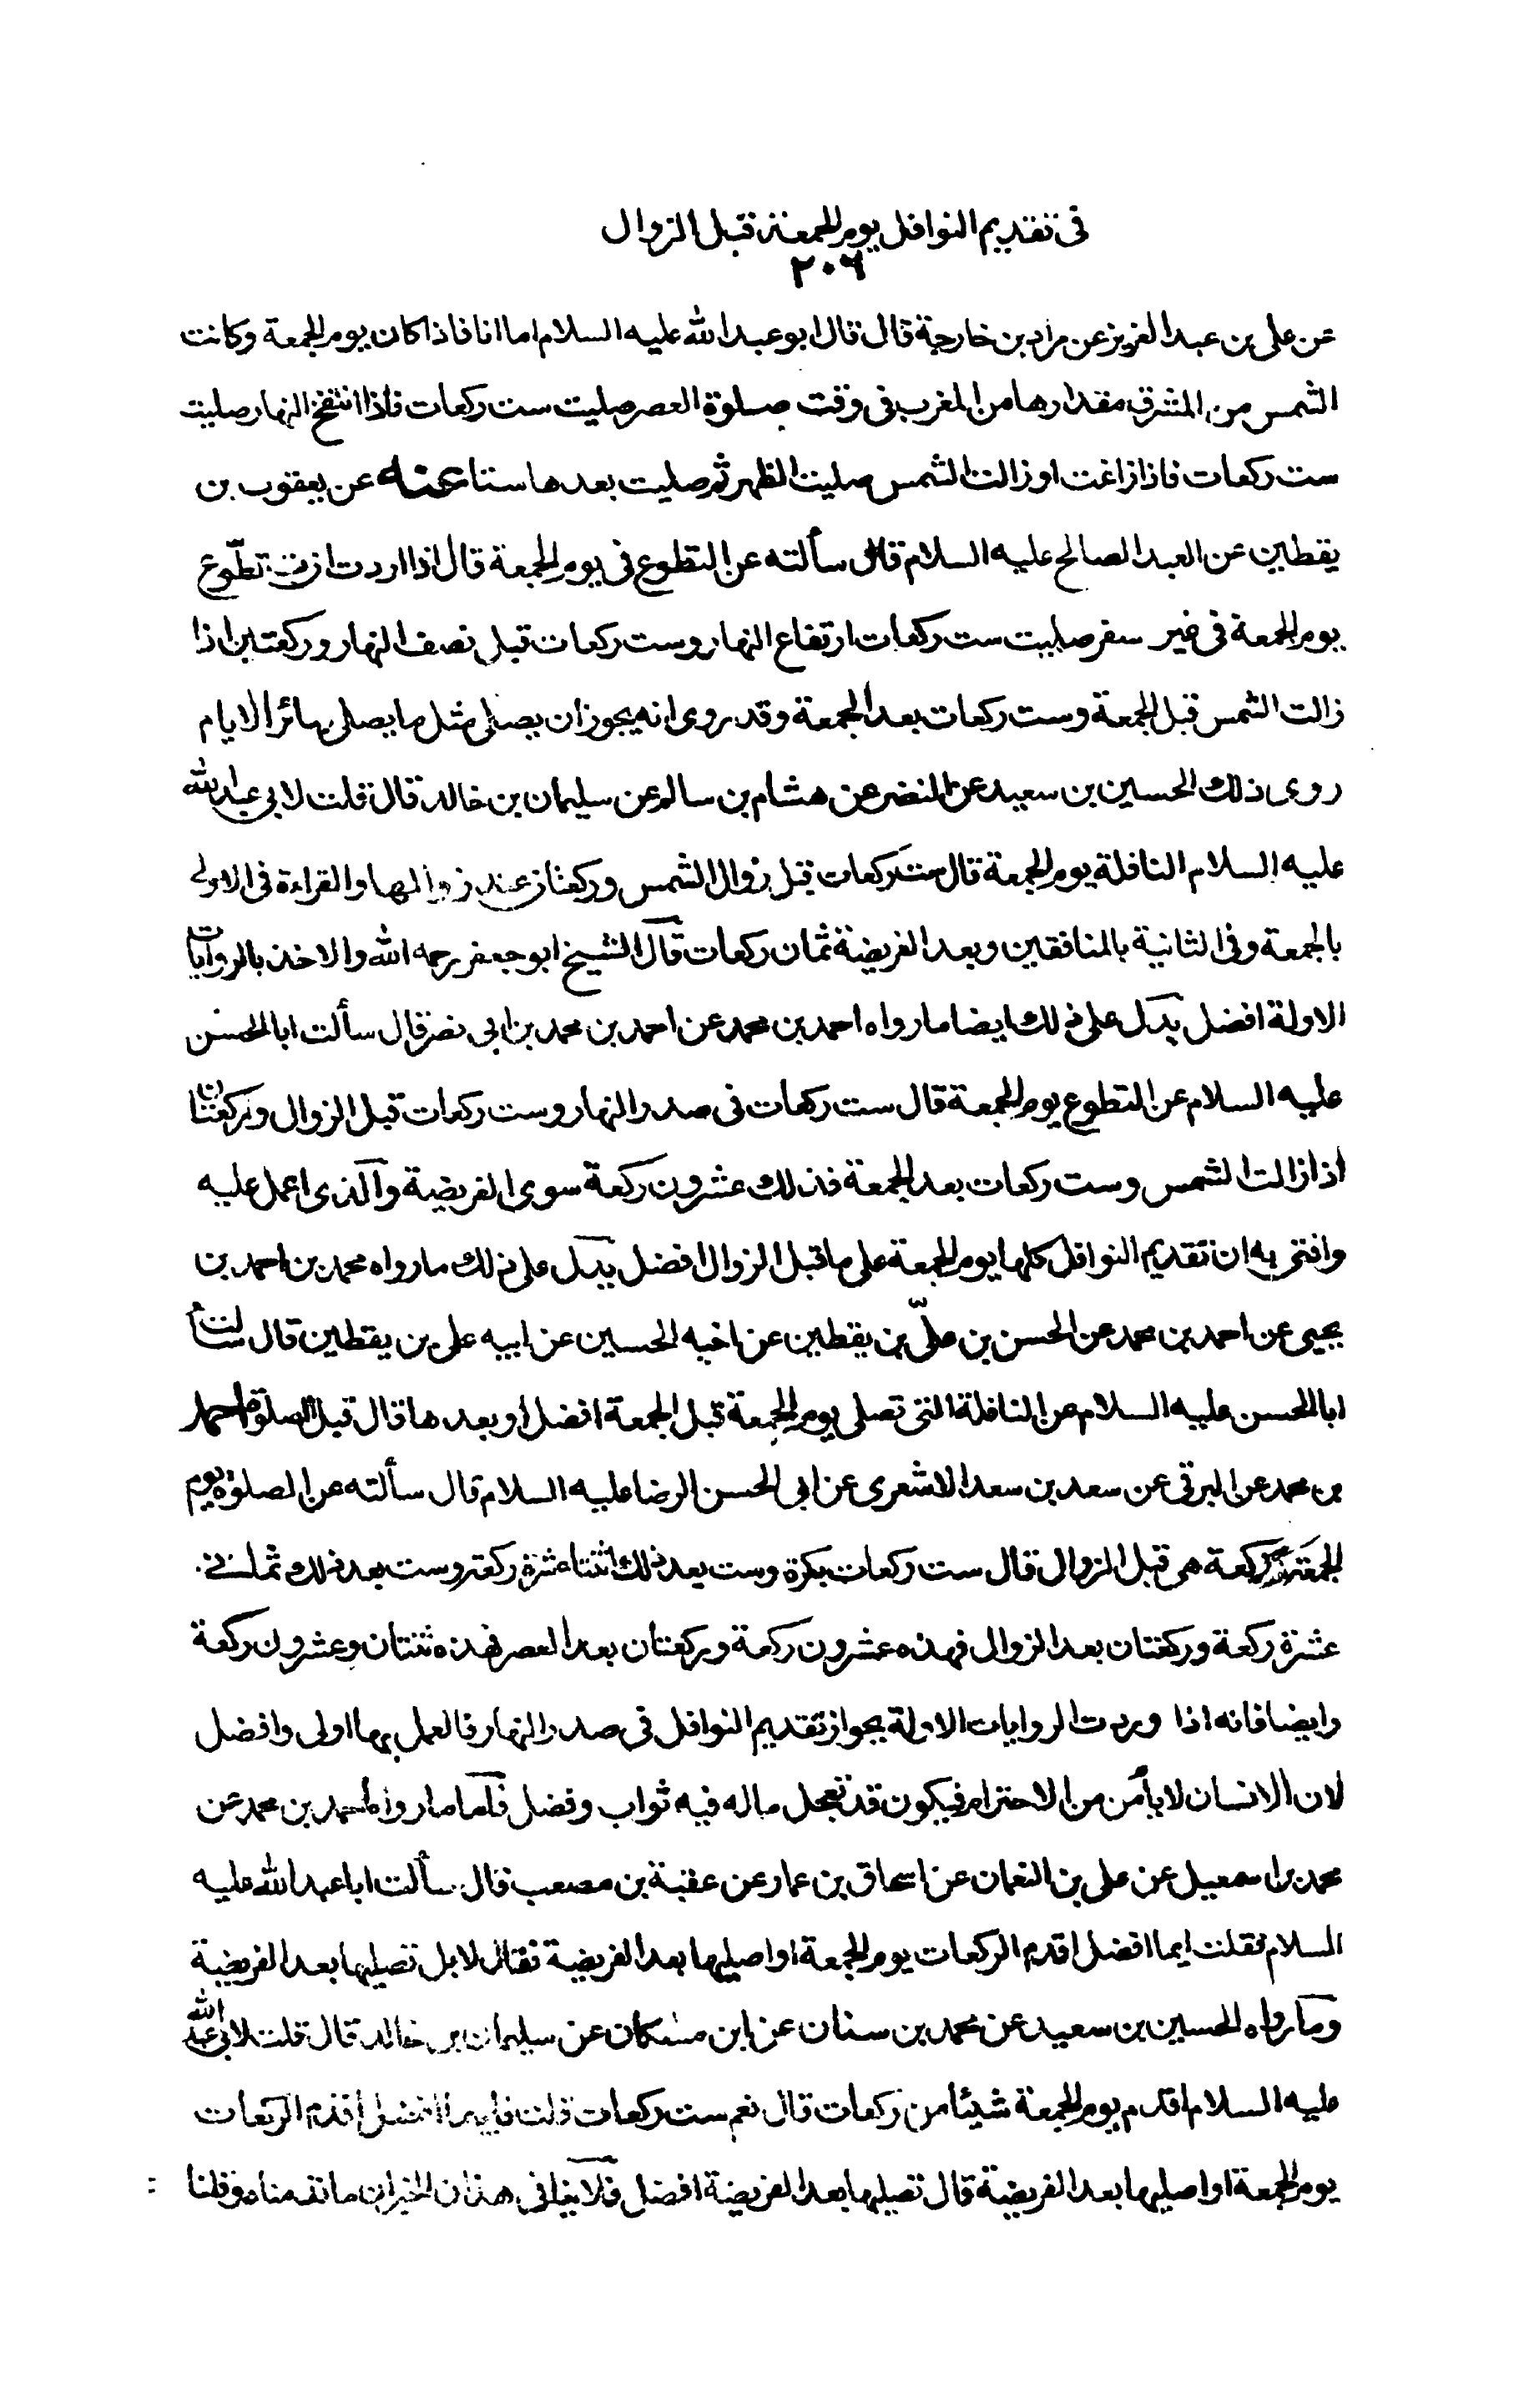 فى تقديم النوافل يوم الجمعة قبل الزوال
٢٠٦
عن على بن عبد العزيز عن مراد بن خارجة قال قال ابو عبد الله عليه السلام اما انا فاذا كان يوم الجمعة وكانت
الشمس من المشرق مقدارها من المغرب فى وقت صلوة العصر صليت ست ركعات فاذا انتفخ النهار صليت
ست ركعات فاذا زاغت او زالت الشمس صليت الظهر ثم صليت بعدها ستا عنه عن يعقوب بن
يقطين عن العبد الصالح عليه السلام قال سألته عن التطوع فى يوم الجمعة قال اذا اردت ان تتطوع
يوم الجمعة فى غير سفر صليت ست ركعات ارتفاع النهار وست ركعات قبل نصف النهار وركعتين اذا
زالت الشمس قبل الجمعة وست ركعات بعد الجمعة وقد روى انه يجوز ان يصلى مثل ما يصلى سائر الايام
روى ذلك الحسين بن سعيد عن النضر عن هشام بن سالم عن سليمان بن خالد قال قلت لابى عبد الله
عليه السلام النافلة يوم الجمعة قال ست ركعات قبل زوال الشمس وركعتان عند زوالها والقراءة فى الاولى
بالجمعة وفى الثانية بالمنافقين وبعد الفريضة ثمان ركعات قال الشيخ ابو جعفر رحمه الله والاخذ بالروايات
الاولة افضل يدل على ذلك ايضا ما رواه احمد بن محمد عن احمد بن محمد بن ابى نصر قال سألت ابا الحسن
عليه السلام عن التطوع يوم الجمعة قال ست ركعات فى صدر النهار وست ركعات قبل الزوال وركعتان
اذا زالت الشمس وست ركعات بعد الجمعة فذلك عشرون ركعة سوى الفريضة والذى اعمل عليه
وافتى به ان تقديم النوافل كلها يوم الجمعة على ما قبل الزوال افضل يدل على ذلك ما رواه محمد بن احمد بن
يحيى عن احمد بن محمد عن الحسن بن على بن يقطين عن اخيه الحسين عن ابيه على بن يقطين قال سألت
ابا الحسن عليه السلام عن النافلة التى تصلى يوم الجمعة قبل الجمعة افضل او بعدها قال قبل الصلوة احمد
بن محمد عن البرقى عن سعد بن سعد الاشعرى عن ابى الحسن الرضا عليه السلام قال سألته عن الصلوة يوم
الجمعة كم ركعة هى قبل الزوال قال ست ركعات بكرة وست بعد ذلك اثنتا عشرة ركعة وست بعد ذلك ثمانى
عشرة ركعة وركعتان بعد الزوال فهذه عشرون ركعة وركعتان بعد العصر فهذه ثنتان وعشرون ركعة
وايضا فانه اذا وردت الروايات الاولة بجواز تقديم النوافل فى صدر النهار فالعمل بها اولى وافضل
لان الانسان لا يأمن من الاحترام فيكون قد تعجل ماله فيه ثواب وفضل فأما ما رواه احمد بن محمد عن
محمد بن اسمعيل عن على بن النعمان عن اسحاق بن عمار عن عقبة بن مصعب قال سألت ابا عبد الله عليه
السلام فقلت ايما افضل اقدم الركعات يوم الجمعة او اصليها بعد الفريضة فقال لا بل تصليها بعد الفريضة
وما رواه الحسين بن سعيد عن محمد بن سنان عن ابن مسكان عن سليمان بن خالد قال قلت لابى عبد الله
عليه السلام اقدم يوم الجمعة شيئا من ركعات قال نعم ست ركعات قلت فايهما افضل اقدم الركعات
يوم الجمعة او اصليها بعد الفريضة قال تصليها بعد الفريضة افضل فلا ينافى هذان الخبران ما قدمناه وقلنا